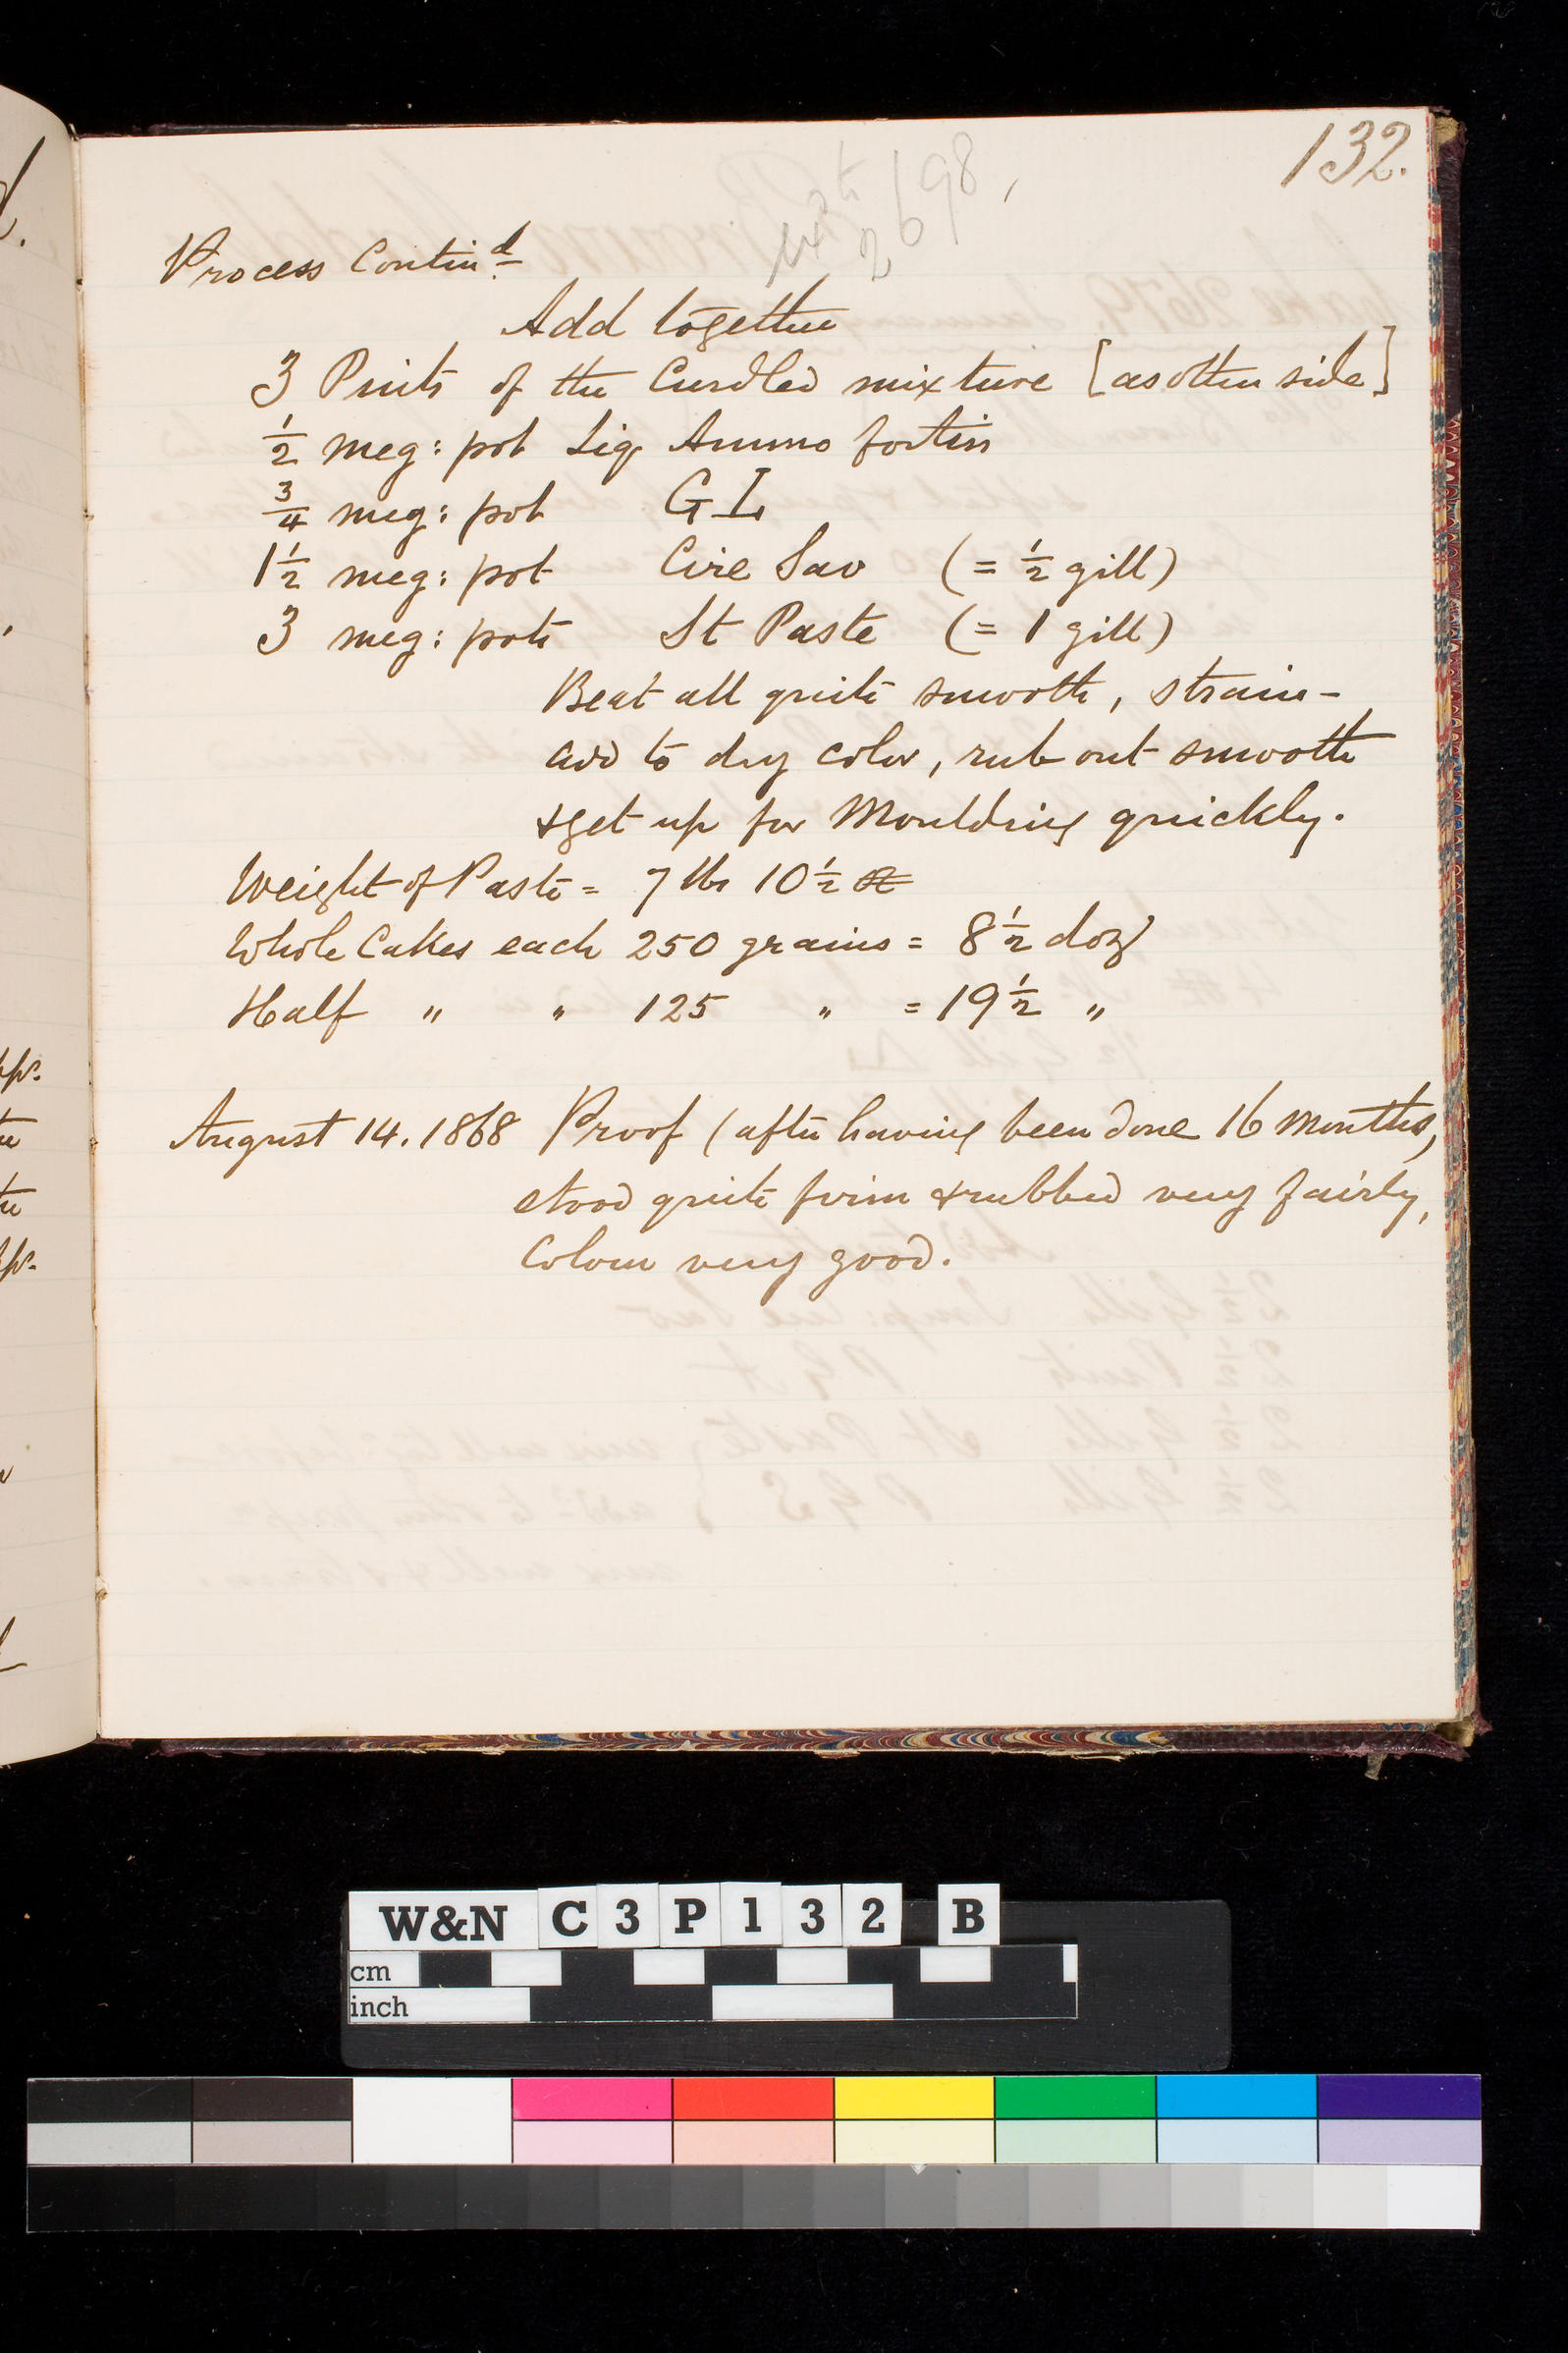 132.
2698,
Process Contind
Add together
3 Pints of the Curdled mixture [as other side]
½ meg: pot Liq Ammo fortis
¾ meg: pot G L
1½ meg: pot Cire Sav (= ½ gill)
3 meg: pots St Paste (= 1 gill)
Beat all quite smooth, strain -
add to dry color, rub out smooth
& get up for Moulding quickly.
Weight of Paste = 7 lbs 10½
Whole Cakes each 250 grains = 8½ doz
Half " " 125 " = 19½ "
August 14. 1868 Proof (after having been done 16 Months,
stood quite firm & rubbed very fairly,
Colour very good.
W&N C 3 P 1 3 2 B
cm
inch